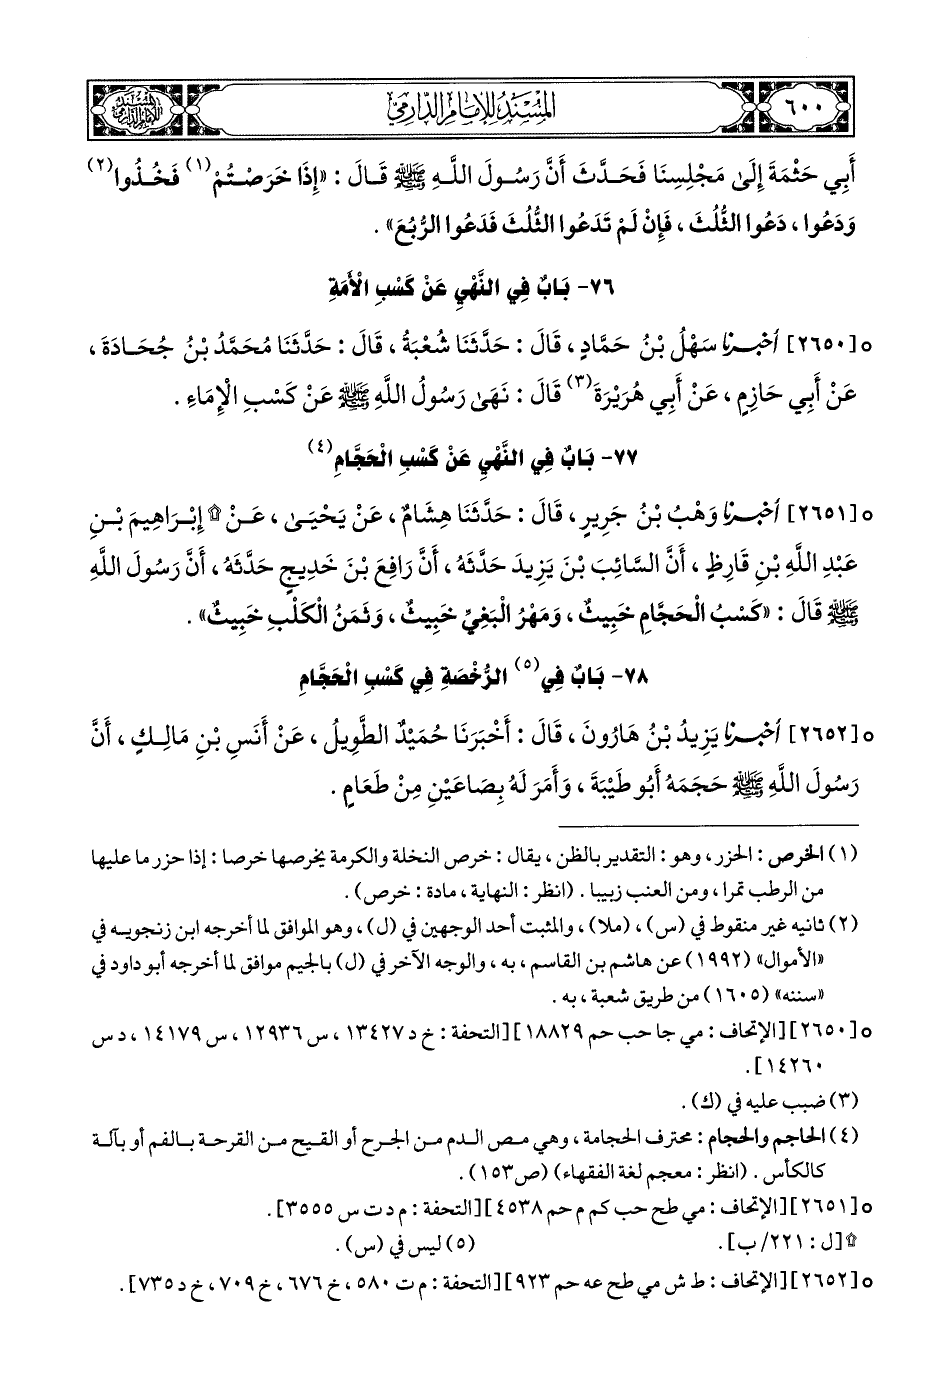 ٦٠٠
المسند للإمام الدارمي
المسند للإمام الدارمي
أَبِي حَثْمَةَ إِلَىٰ مَجْلِسِنَا فَحَدَّثَ أَنَّ رَسُولَ اللَّهِ ﷺ قَالَ : «إِذَا خَرَصْتُمْ(١) فَخُذُوا(٢)
وَدَعُوا ، دَعُوا الثُّلُثَ ، فَإِنْ لَمْ تَدَعُوا الثُّلُثَ فَدَعُوا الرُّبُعَ» .
٧٦- بَابٌ فِي النَّهْيِ عَنْ كَسْبِ الْأَمَةِ
○ [٢٦٥٠] أَخْبَرَنَا سَهْلُ بْنُ حَمَّادٍ ، قَالَ : حَدَّثَنَا شُعْبَةُ ، قَالَ : حَدَّثَنَا مُحَمَّدُ بْنُ جُحَادَةَ ،
عَنْ أَبِي حَازِمٍ ، عَنْ أَبِي هُرَيْرَةَ(٣) قَالَ : نَهَىٰ رَسُولُ اللَّهِ ﷺ عَنْ كَسْبِ الْإِمَاءِ .
٧٧- بَابٌ فِي النَّهْيِ عَنْ كَسْبِ الْحَجَّامِ(٤)
○ [٢٦٥١] أَخْبَرَنَا وَهْبُ بْنُ جَرِيرٍ ، قَالَ : حَدَّثَنَا هِشَامٌ ، عَنْ يَحْيَىٰ ، عَنْ ۩ إِبْرَاهِيمَ بْنِ
عَبْدِ اللَّهِ بْنِ قَارِظٍ ، أَنَّ السَّائِبَ بْنَ يَزِيدَ حَدَّثَهُ ، أَنَّ رَافِعَ بْنَ خَدِيجٍ حَدَّثَهُ ، أَنَّ رَسُولَ اللَّهِ
ﷺ قَالَ : «كَسْبُ الْحَجَّامِ خَبِيثٌ ، وَمَهْرُ الْبَغِيِّ خَبِيثٌ ، وَثَمَنُ الْكَلْبِ خَبِيثٌ» .
٧٨- بَابٌ فِي(٥) الرُّخْصَةِ فِي كَسْبِ الْحَجَّامِ
○ [٢٦٥٢] أَخْبَرَنَا يَزِيدُ بْنُ هَارُونَ ، قَالَ : أَخْبَرَنَا حُمَيْدٌ الطَّوِيلُ ، عَنْ أَنَسِ بْنِ مَالِكٍ ، أَنَّ
رَسُولَ اللَّهِ ﷺ حَجَمَهُ أَبُو طَيْبَةَ ، وَأَمَرَ لَهُ بِصَاعَيْنِ مِنْ طَعَامٍ .
(١) الخرص : الحزر ، وهو : التقدير بالظن ، يقال : خرص النخلة والكرمة يخرصها خرصا : إذا حزر ما عليها
من الرطب تمرا ، ومن العنب زبيبا . (انظر : النهاية ، مادة : خرص) .
(٢) ثانيه غير منقوط في (س) ، (ملا) ، والمثبت أحد الوجهين في (ل) ، وهو الموافق لما أخرجه ابن زنجويه في
«الأموال» (١٩٩٢) عن هاشم بن القاسم ، به ، والوجه الآخر في (ل) بالجيم موافق لما أخرجه أبو داود في
«سننه» (١٦٠٥) من طريق شعبة ، به .
○ [٢٦٥٠] [الإتحاف : مي جا حب حم ١٨٨٢٩] [التحفة : خ د ١٣٤٢٧ ، س ١٢٩٣٦ ، س ١٤١٧٩ ، د س
١٤٢٦٠] .
(٣) ضبب عليه في (ك) .
(٤) الحاجم والحجام : محترف الحجامة ، وهي مص الدم من الجرح أو القيح من القرحة بالفم أو بآلة
كالكأس . (انظر : معجم لغة الفقهاء) (ص١٥٣) .
○ [٢٦٥١] [الإتحاف : مي طح حب كم م حم ٤٥٣٨] [التحفة : م د ت س ٣٥٥٥] .
۩ [ل : ٢٢١/ ب] . (٥) ليس في (س) .
○ [٢٦٥٢] [الإتحاف : ط ش مي طح عه حم ٩٢٣] [التحفة : م ت ٥٨٠ ، خ ٦٧٦ ، خ ٧٠٩ ، خ د ٧٣٥] .